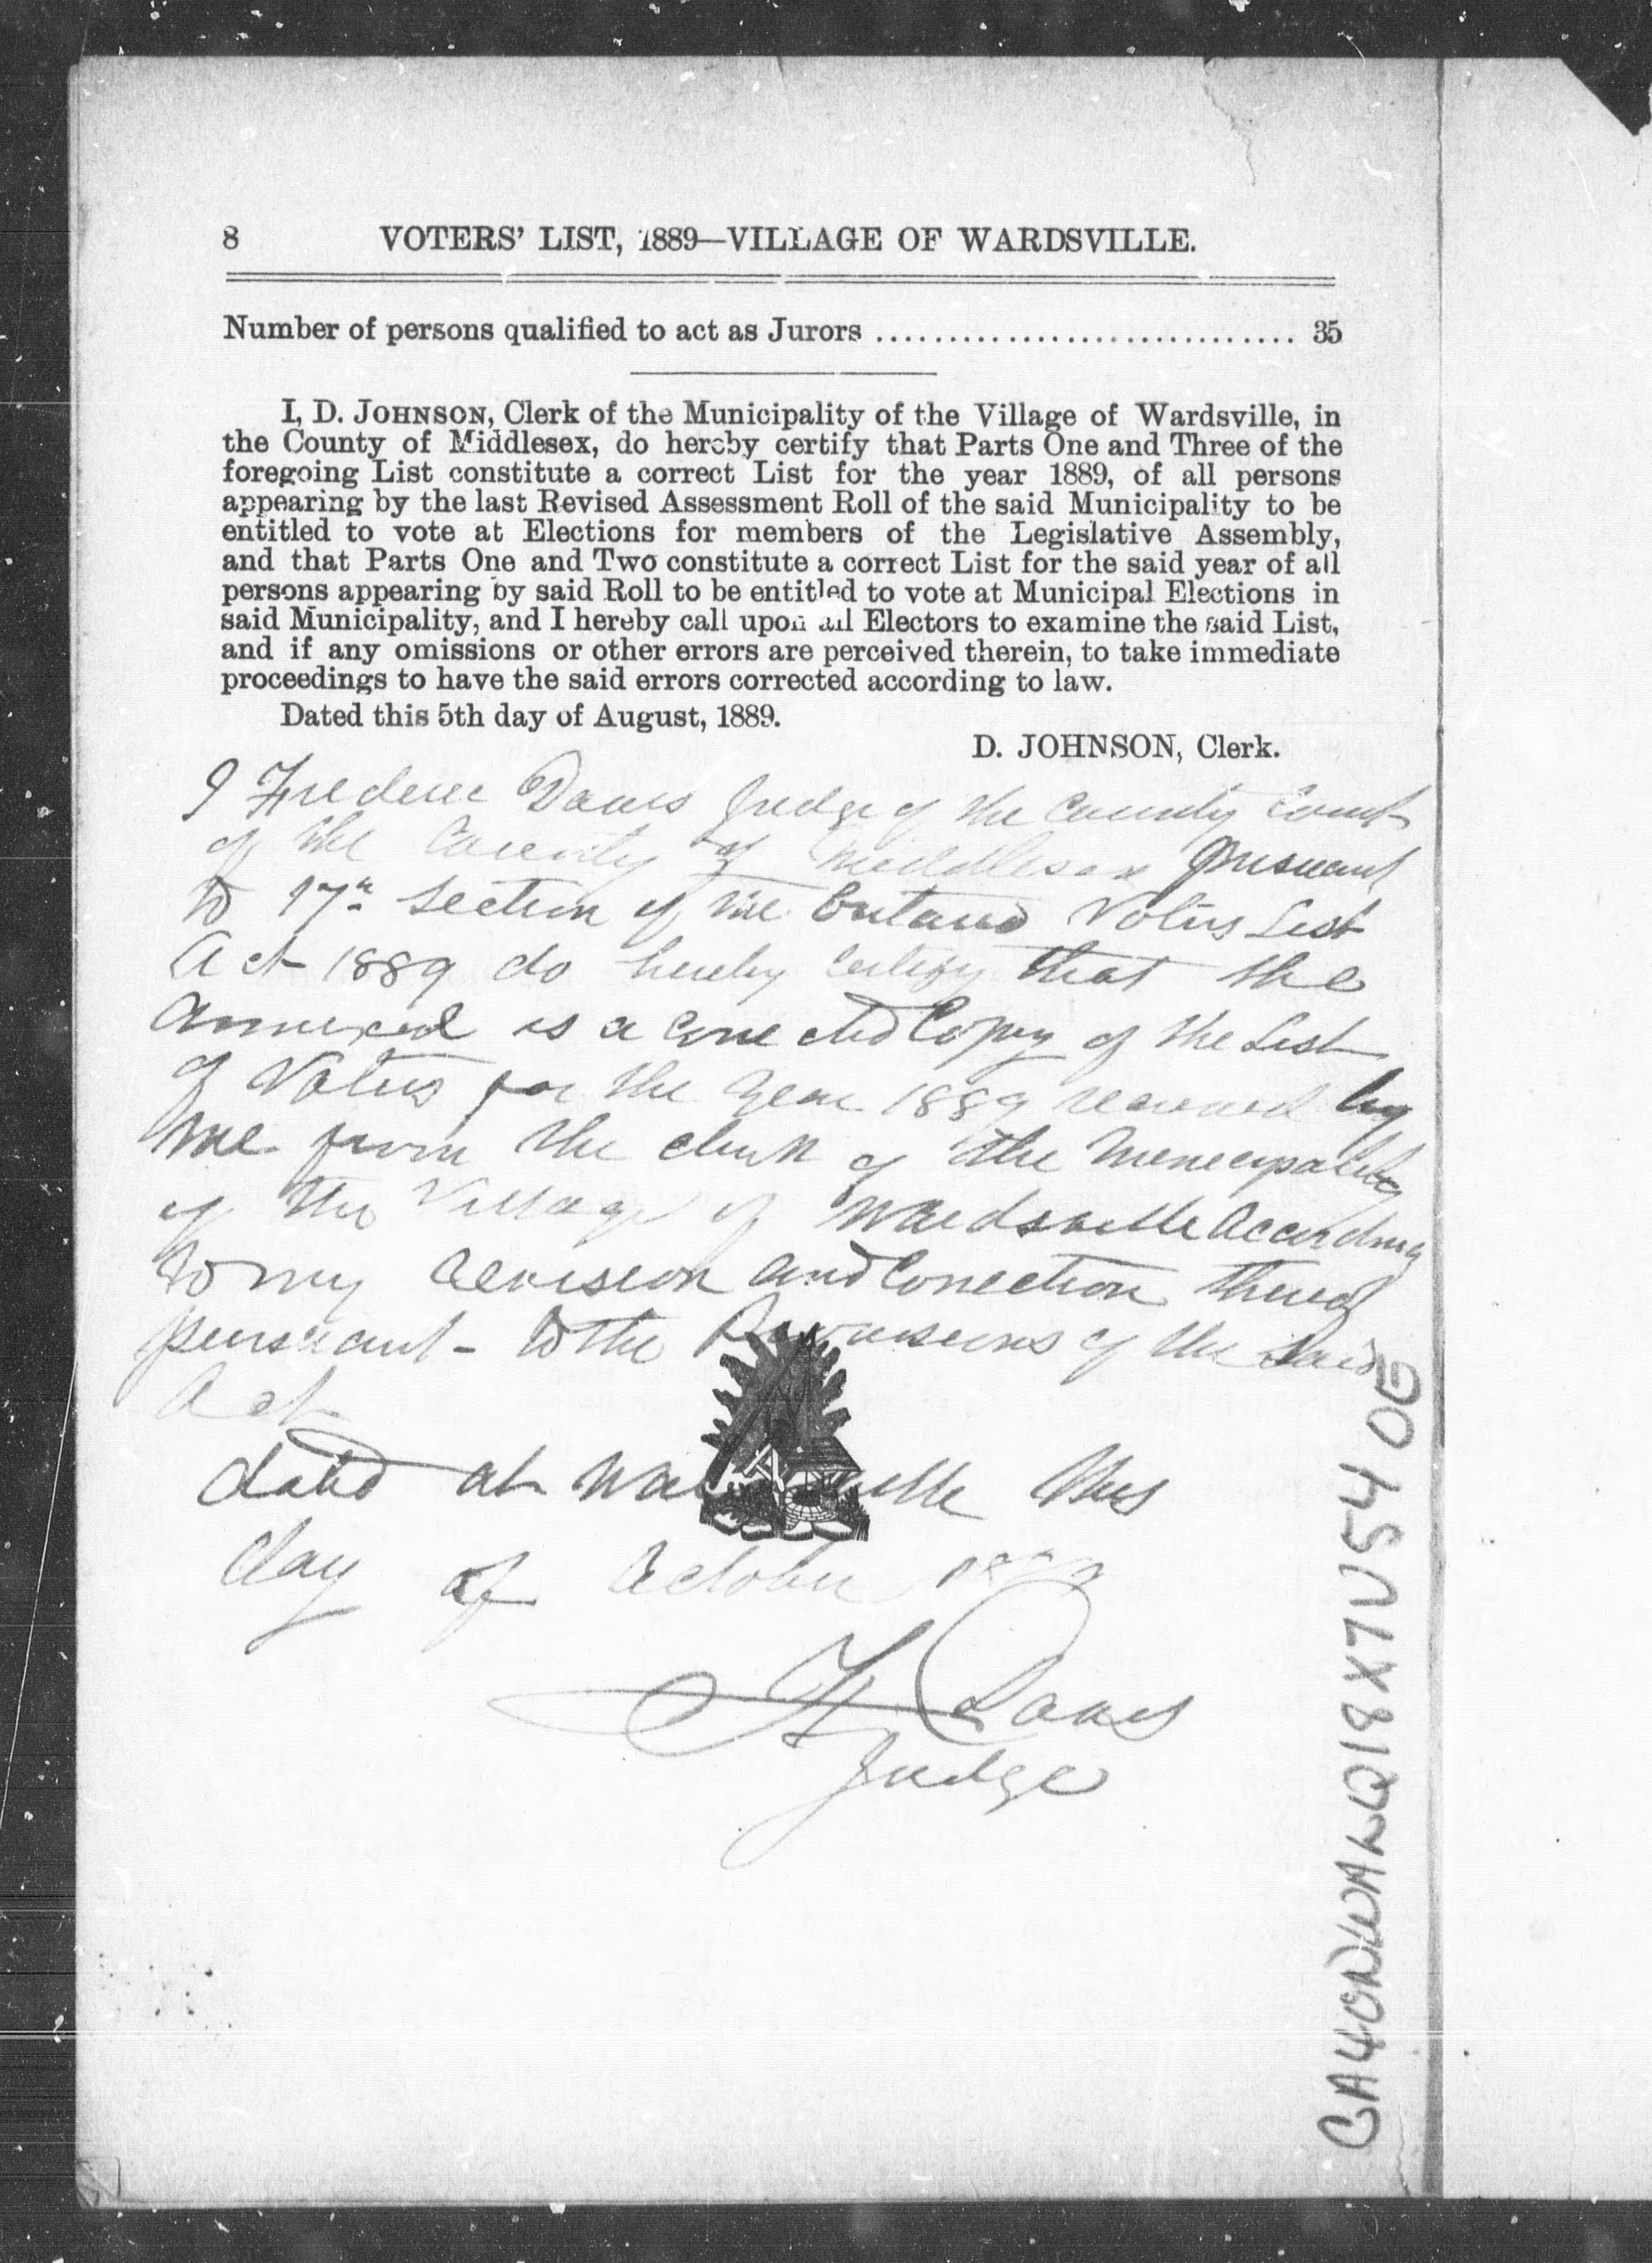 8 VOTERS' LIST, 1889—VILLAGE OF WARDSVILLE.
Number of persons qualified to act as Jurors .............................. 35
I, D. JOHNSON, Clerk of the Municipality of the Village of Wardsville, in
the County of Middlesex, do hereby certify that Parts One and Three of the
foregoing List constitute a correct List for the year 1889, of all persons
appearing by the last Revised Assessment Roll of the said Municipality to be
entitled to vote at Elections for members of the Legislative Assembly,
and that Parts One and Two constitute a correct List for the said year of all
persons appearing by said Roll to be entitled to vote at Municipal Elections in
said Municipality, and I hereby call upon all Electors to examine the said List,
and if any omissions or other errors are perceived therein, to take immediate
proceedings to have the said errors corrected according to law.
Dated this 5th day of August, 1889.
D. JOHNSON, Clerk.
I Frederic Davis Judge of the County Court
of the County of Middlesex pursuant
to 17th Section of the Ontario Voters List
Act 1889 do hereby certify that the
annexed is a corrected Copy of the List
of Voters for the year 1889 received by
me from the clerk of the Municipality
of the Village of Wardsville according
to my revision and Correction thereof
pursuant to the Provisions of the Said
Act
dated at Wardsville this
day of October
F Davis
Judge
CA4ONWAWQ18X7V54 OE